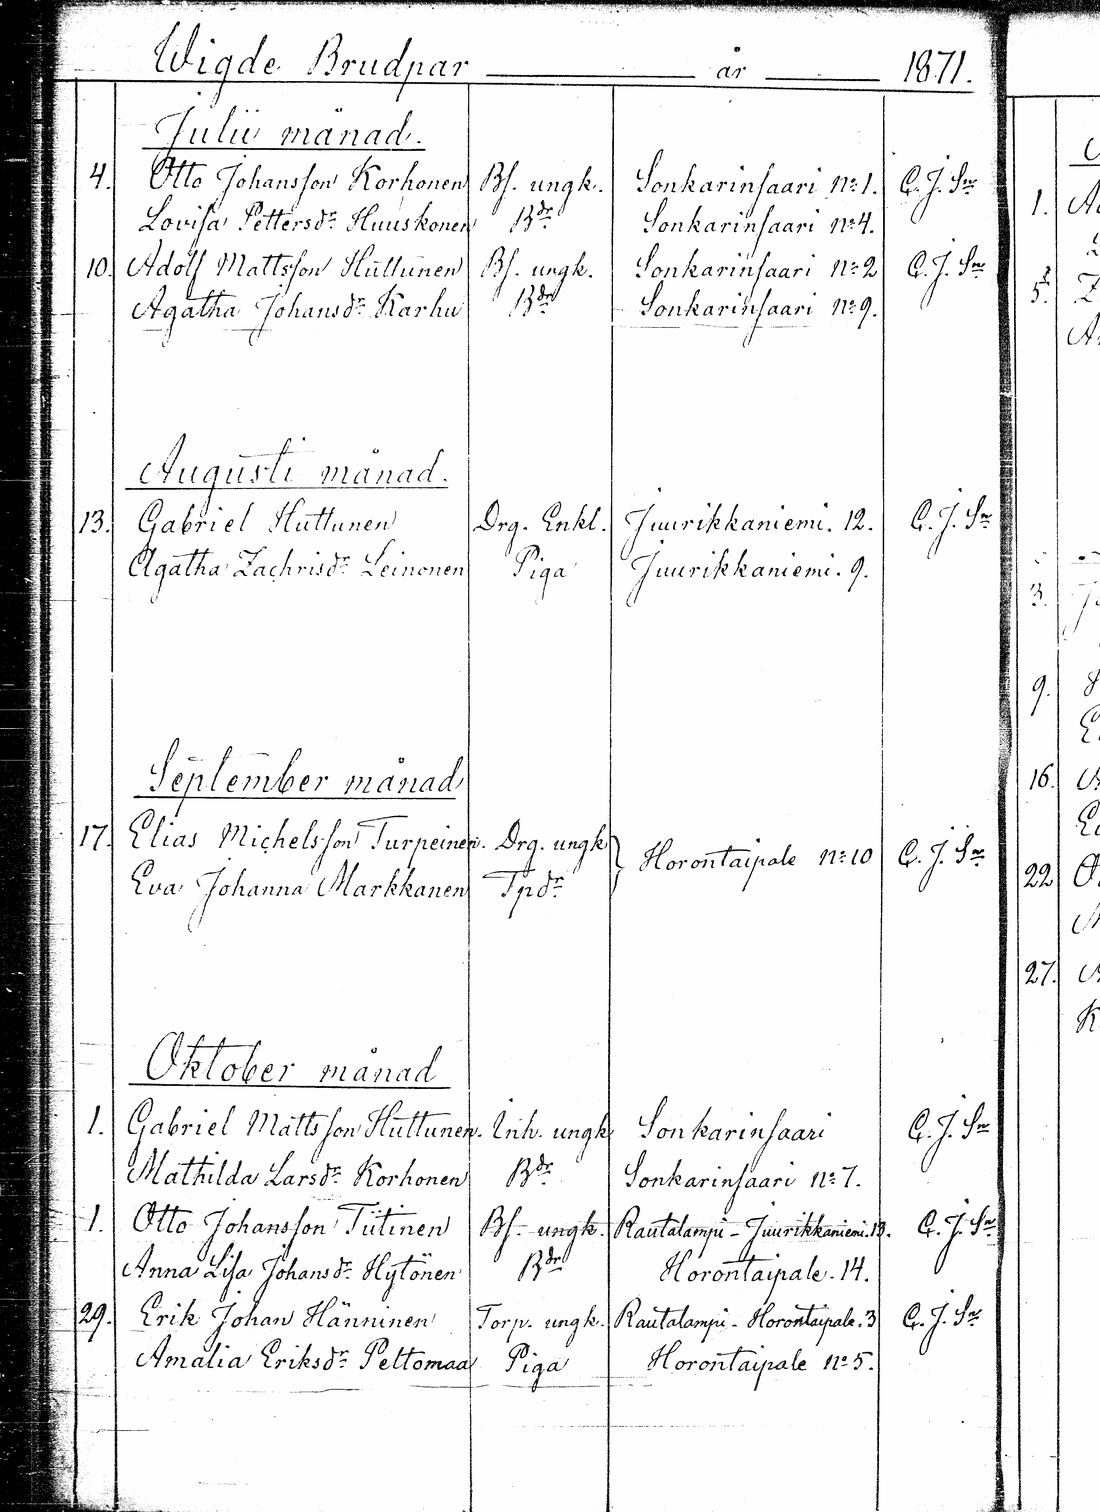 Wigde Brudpar år 1871.
Julii månad.
4. Otto Johansson Korhonen Bs. ungk. Sonkarinsaari No 1. C. J. Sm
Lovisa Pettersdr Huuskonen Bdr Sonkarinsaari No 4.
10. Adolf Mattsson Huttunen Bs. ungk. Sonkarinsaari No 2 C. J. Sm
Agatha Johansdr Karhu Bdr Sonkarinsaari No 9.
Augusti månad.
13. Gabriel Huttunen Drg. Enkl. Juurikkaniemi. 12. C. J. Sm
Agatha Zachrisdr Leinonen Piga Juurikkaniemi. 9.
September månad
17. Elias Michelsson Turpeinen. Drg. ungk } Horontaipale No 10 C. J. Sm
Eva Johanna Markkanen Tpdr
Oktober månad
1. Gabriel Mattsson Huttunen. Inh. ungk Sonkarinsaari C. J. Sm
Mathilda Larsdr Korhonen Bdr Sonkarinsaari No 7.
1. Otto Johansson Tiitinen Bs. ungk. Rautalampi - Juurikkaniemi. 13. C. J. Sm
Anna Lisa Johansdr Hytönen Bdr Horontaipale. 14.
29. Erik Johan Hänninen Torp. ungk. Rautalampi - Horontaipale. 3 C. J. Sm
Amalia Eriksdr Peltomaa Piga Horontaipale No 5.
1.
5.
3.
9.
16.
22
27.